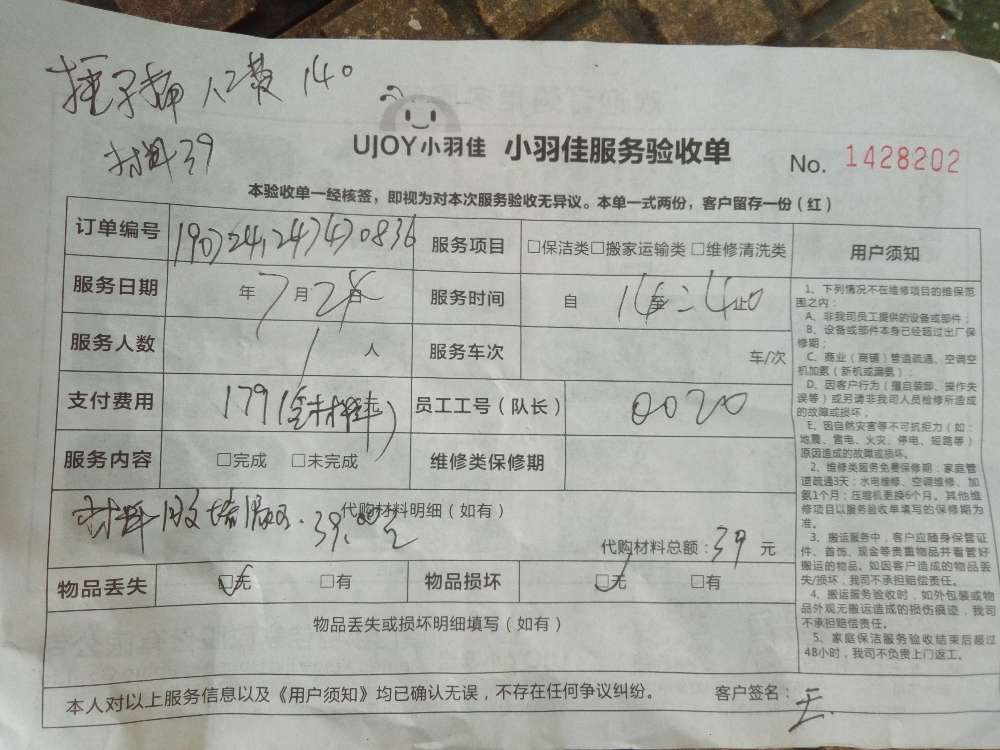 人工费 140
材料39
UJOY小羽佳 小羽佳服务验收单 No. 1428202
本验收单一经核签，即视为对本次服务验收无异议。本单一式两份，客户留存一份（红）
订单编号 服务项目 □保洁类□搬家运输类 □维修清洗类
服务日期 年 7月2 日 服务时间 自 至 止
服务人数 1 人 服务车次 车/次
支付费用 179(含材料) 员工工号（队长） 0020
服务内容 □完成 □未完成 维修类保修期
代购材料明细（如有）
材料 39.00元
代购材料总额：39 元
物品丢失 □无 □有 物品损坏 □无 □有
物品丢失或损坏明细填写（如有）
本人对以上服务信息以及《用户须知》均已确认无误，不存在任何争议纠纷。 客户签名： 王
用户须知
1、下列情况不在维修项目的维保范
围之内：
A、非我司员工提供的设备或部件；
B、设备或部件本身已经超过出厂保
修期；
C、商业（商铺）管道疏通、空调空
机加氨（新机或漏氨）；
D、因客户行为（擅自装卸、操作失
误等）或另请非我司人员检修所造成
的故障或损坏，
E、因自然灾害等不可抗拒力（如：
地震、雷电、火灾、停电、短路等）
原因造成的故障或损坏。
2、维修类服务免费保修期：家庭管
道疏通3天；水电维修、空调维修、加
氨1个月；压缩机更换6个月。其他维
修项目以服务验收单填写的保修期为
准。
3、搬运服务中，客户应随身保管证
件、首饰、现金等贵重物品并看管好
搬运的物品。如因客户造成的物品丢
失/损坏，我司不承担赔偿责任。
4、搬运服务验收时，如外包装或物
品外观无搬运造成的损伤痕迹，我司
不承担赔偿责任。
5、家庭保洁服务验收结束后超过
48小时，我司不负责上门返工。